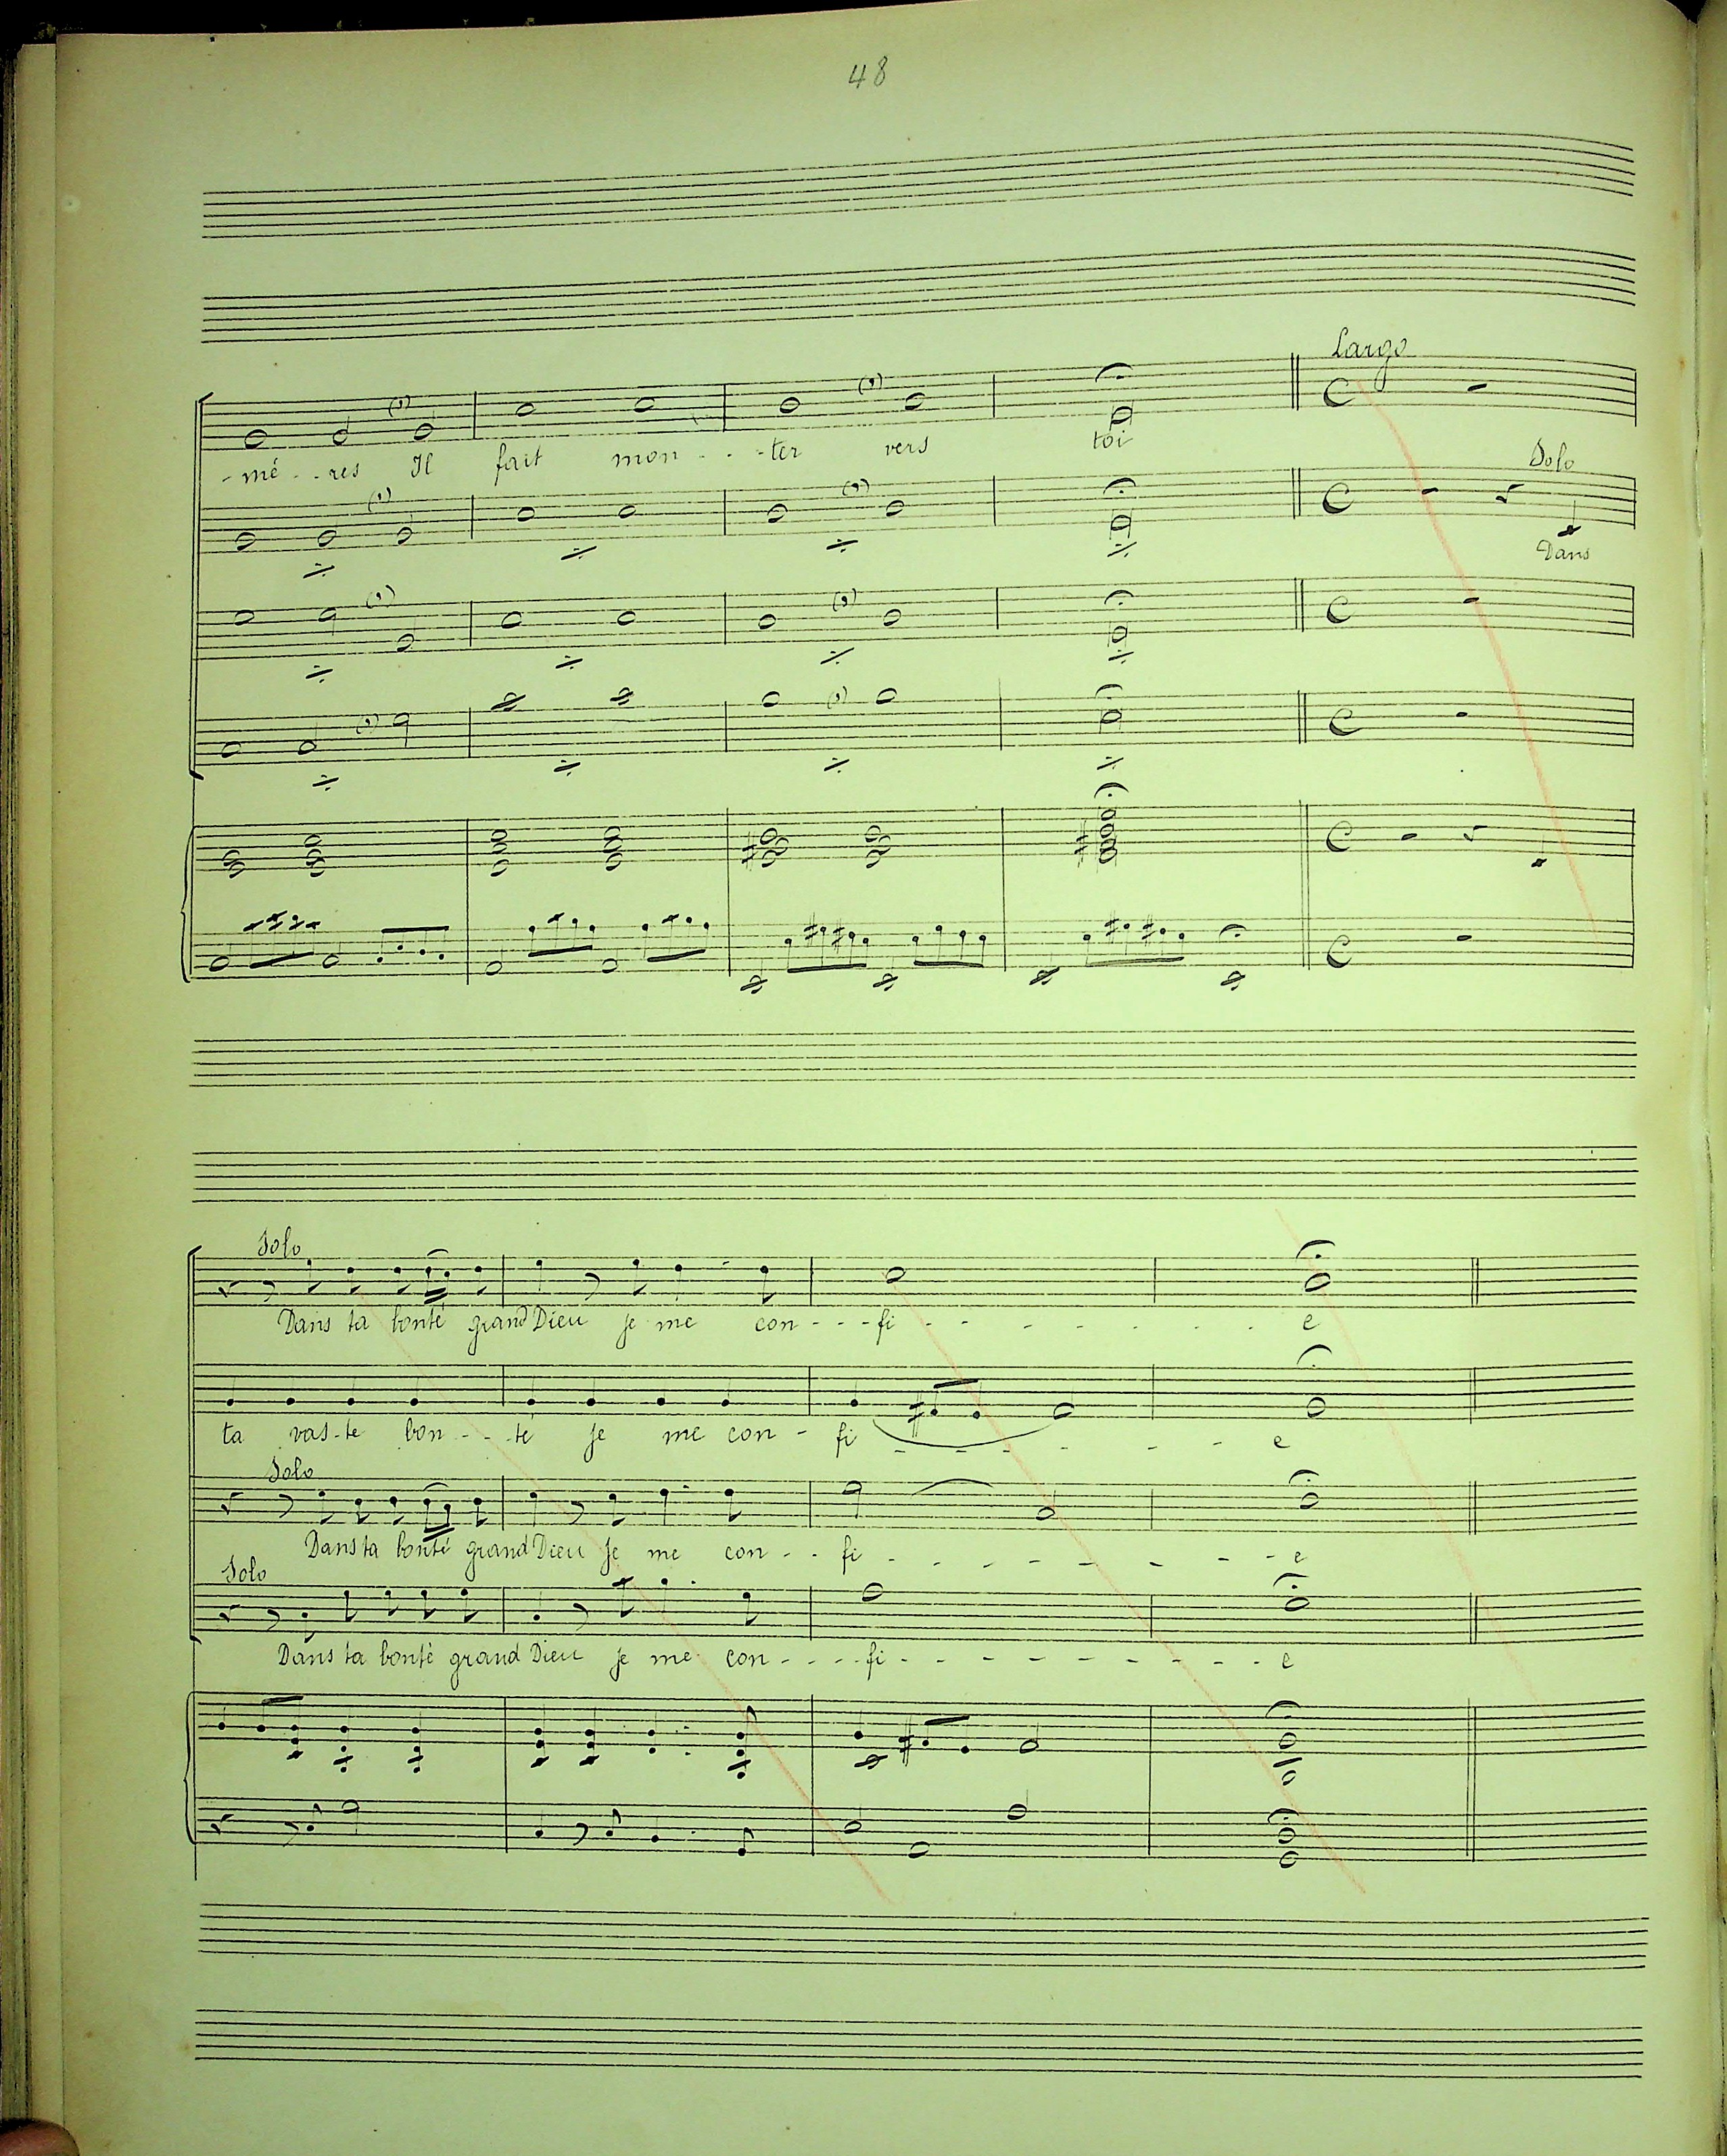 48
Largo
- mé - - res Il fait mon - - - ter vers toi
Solo
Dans
Solo
Dans ta bonté grand Dieu je me con - - - fi - - - - - - - e
ta vas - te bon - - - té je me con - fi - - - - - e
Solo
Dans ta bonté grand Dieu je me con - - fi - - - - - - - e
Solo
Dans ta bonté grand Dieu je me con - - - - fi - - - - - - - - - e